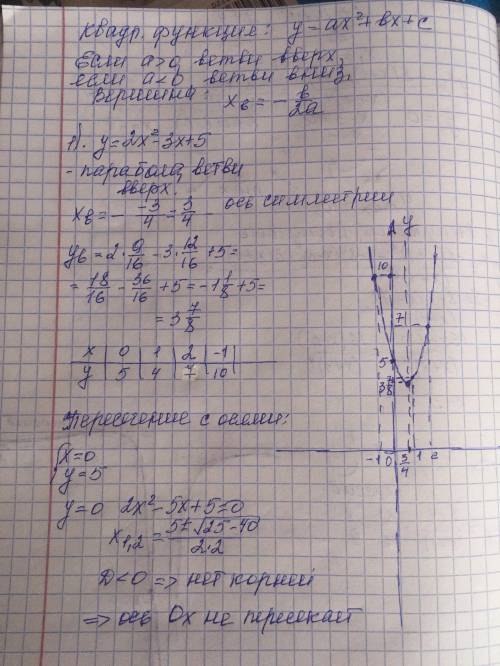 Квадр. функция: y=ax²+bx+c
Если a>0 ветви вверх,
если a<0 ветви вниз,
Вершина: x_в = -b/2a
1). y=2x²-3x+5
- парабола, ветви
вверх.
x_в = - -3/4 = 3/4 ось симметрии
y_в = 2·9/16 - 3·12/16 + 5 =
= 18/16 - 36/16 + 5 = -1 1/8 + 5 =
= 3 7/8
x | 0 | 1 | 2 | -1 |
y | 5 | 4 | 7 | 10 |
Пересечение с осями:
{x=0
{y=5
y=0 2x²-5x+5=0
x₁,₂ = 5±√25-40 / 2·2
D<0 => нет корней
=> ось Ox не пересекает
y
10
7
5
3 7/8
-1 0 3/4 1 2